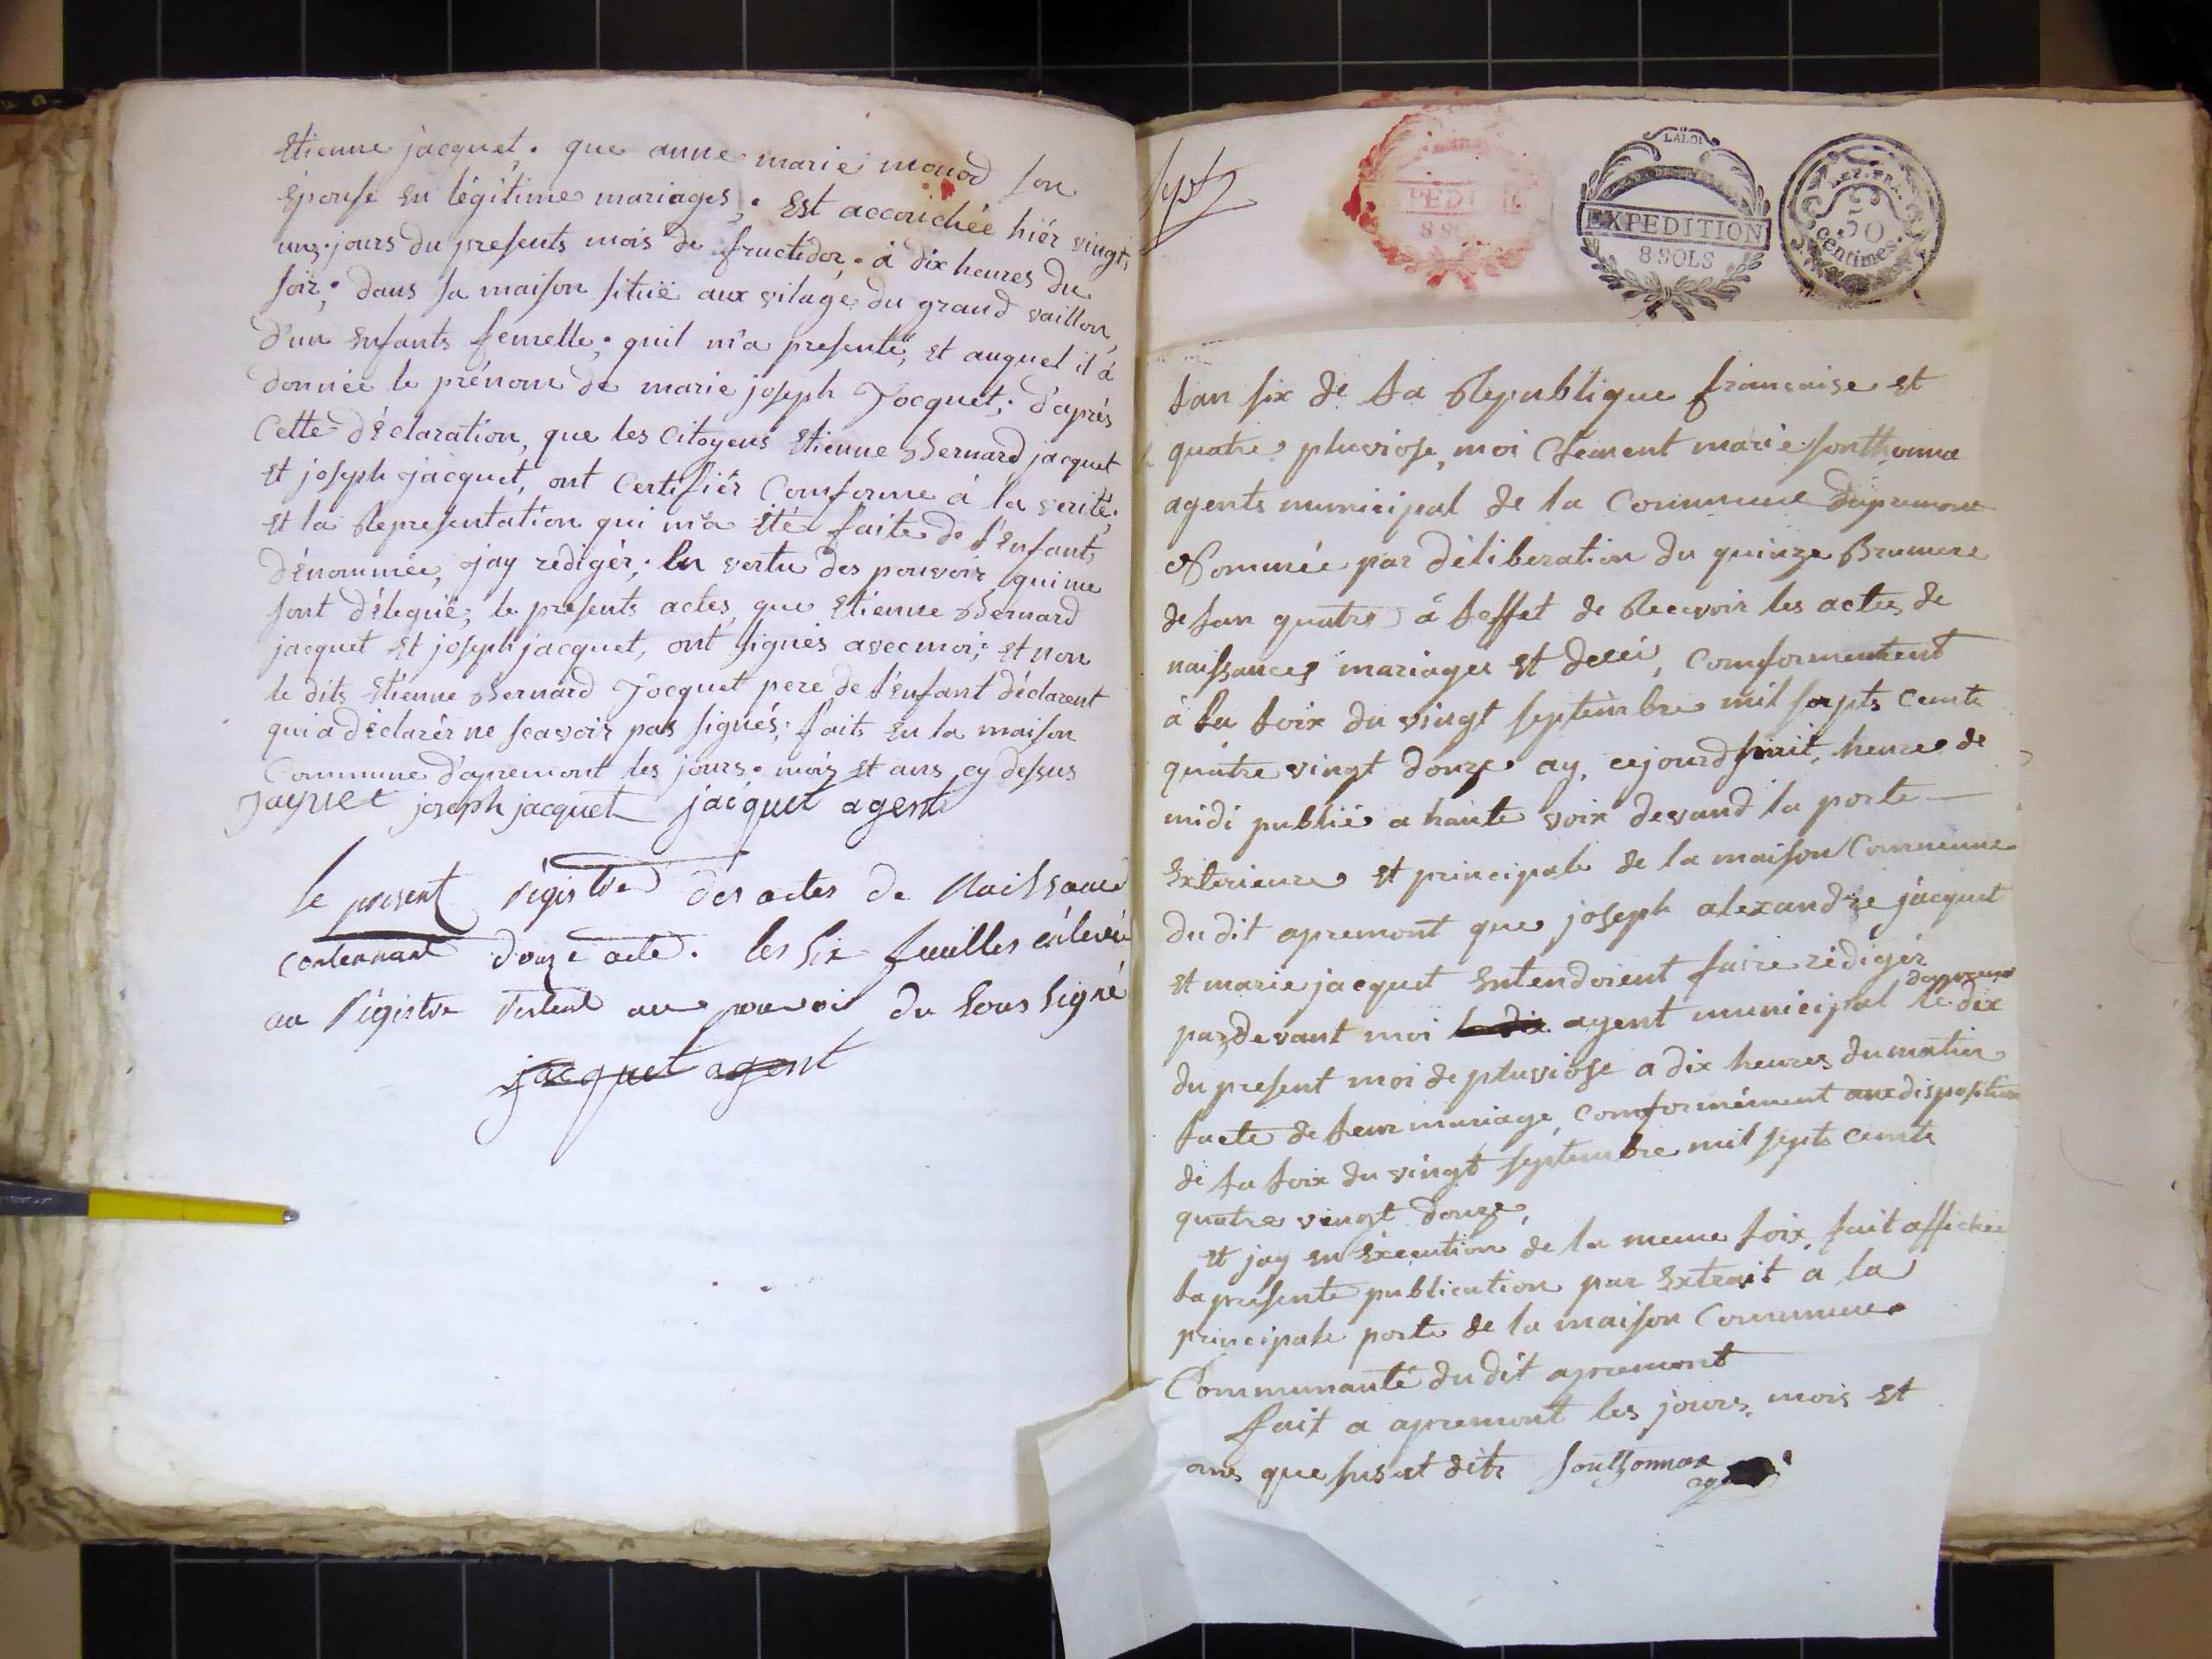 Etienne jacquet. que anne marie monod son
épouse en légitime mariages; Est accouchée hiér vingt
unz jours du presents mois de fructidor. à dix heures du
soir; dans sa maison situë aux vilage du grand vaillon,
d'un enfants femelle; quil m'a presenté, et auquel il à
donnée le prénom de marie joseph Jocquet; d'aprés
Cette déclaration, que les Citoyens Etienne Bernard jacquet
et joseph jacquet, ont Certifiér Comforme à la verité;
et la Representation qui m'a été faite de l'enfants
dénommée, jay redigér; En vertu des pouvoir qui me
sont déleguë, le presents actes, que Etienne Bernard
jacquet et joseph jacquet, ont signés avec moi; et non
le dits Etienne Bernard Jocquet pere de l'enfant déclarent
qui a déclarér ne scavoir pas signés; faits En la maison
Commune d'apremont les jours. mois et ans cy dessus
jaquet joseph jacquet jacquet agent
le présent régistre des actes de Naissance
contennant douze acte. les six feuilles
au régistre au pouvoir du sous signé
jacquet agent
LALOI
EXPEDITION
8 SOLS
EXPEDITION
8 SOLS
REP. FRA.
50
centimes.
Lan six de La Republique francaise et
quatre pluviose, moi Clement marie sonthonna
agents municipal de la Commune dapremont
Nommée par déliberation du quinze Brumere
de Lan quatre à Leffet de Recevoir les actes de
naissances mariages et deééi, Comformement
à La Loix du vingt septembre mil septs cents
quatre vingt douze ay, cejourdhuit, heure de
midi publié a haute voix devand la porte
Exterieure et principale de la maison Commune
du dit apremont que joseph alexandre jacquet
et marie jacquet Entendoient faire rédigér
pardevant moi agent municipal le dix
du present moi de pluviose a dix heures du matin
Lacte de Leur mariage, Comformément aux disposition
de La Loix du vingt septembre mil septs cents
quatre vingt douze,
et jay en Execution de la meme Loix, fait affichée
La presente publication par Extrait a la
principale porte de la maison Commune
Communauté du dit apremont
fait a apremont les jours, mois et
ans que sus et dite Sonthonnax